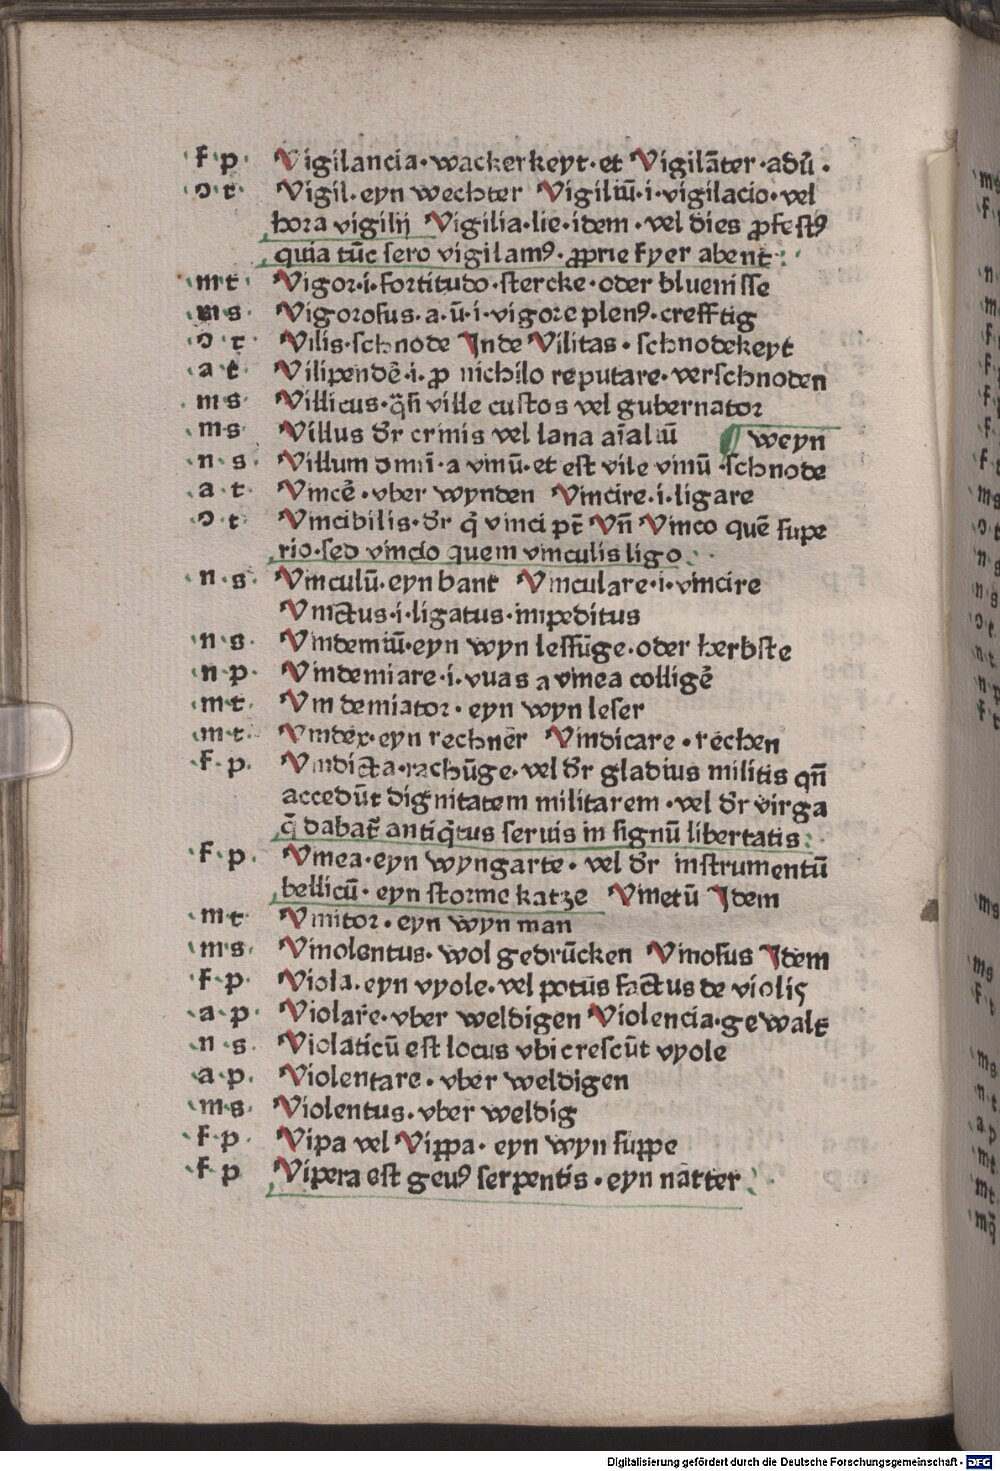 f p Vigilancia· wackerkeyt· et Vigilāter ·adū·
ↄ t Vigil· eyn wechter Vigiliū·i·vigilacio· vel
hora vigilij Vigilia·lie·idem· vel dies ꝓfestꝰ
quia tūc sero vigilamꝰ· ꝓprie fyer abent
m t Vigor·i·fortitudo·stercke·oder bluenisse
m s Vigorosus·a·ū·i·vigore plenꝰ·crefftig
ↄ t Vilis·schnode Inde Vilitas· schnodekeyt
a t Vilipendē·i·ꝓ nichilo reputare·verschnoden
m s Villicus·q̄si ville custos vel gubernator
m s Villus dr̄ crinis vel lana aīaliū weyn
n s Villum dimī·a vinū·et est vile vinū ·schnode
a t Vincē·vber wynden Vincire·i·ligare
ↄ t Vincibilis·dr̄ q̇ vinci pt̄ Vn̄ Vinco quē supe
rio·sed vincio quem vinculis ligo
n s Vinculū·eyn bant Vinculare·i·vincire
Vinctus·i·ligatus·impeditus
n s Vindemiū·eyn wyn lessūge·oder herbste
n p Vindemiare·i·vuas a vinea colligē
m t Vindemiator·eyn wyn leser
m t Vindex·eyn rechner Vindicare·rechen
f p Vindicta·rachūge·vel dr̄ gladius militis qn̄
accedūt dignitatem militarem·vel dr̄ virga
q̄ dabat̄ antiq̇tus seruis in signū libertatis
f p Vinea·eyn wyngarte·vel dr̄ instrumentū
bellicū·eyn storme katze Vinetū Idem
m t Vinitor·eyn wyn man
m s Vinolentus·wol gedrūcken Vinosus Idem
f p Viola·eyn vyole·vel potus factus de violis
a p Violare·vber weldigen Violencia·gewalt
n s Violaticū est locus vbi crescūt vyole
a p Violentare·vber weldigen
m s Violentus·vber weldig
f p Vipa vel Vippa·eyn wyn suppe
f p Vipera est geuꝰ serpentis·eyn natter
Digitalisierung gefördert durch die Deutsche Forschungsgemeinschaft - DFG